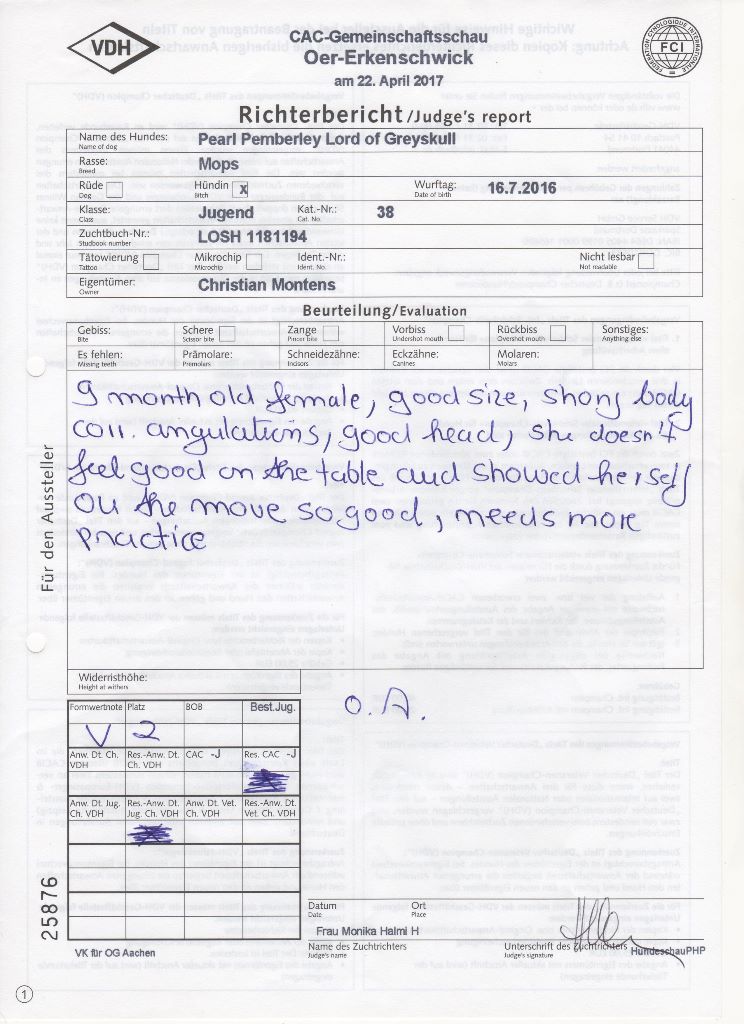 VDH
CAC-Gemeinschaftsschau
Oer-Erkenschwick
am 22. April 2017
FEDERATION CYNOLOGIQUE INTERNATIONALE
FCI
Richterbericht/Judge's report
Name des Hundes: Pearl Pemberley Lord of Greyskull
Name of dog
Rasse: Mops
Breed
Rüde Hündin x Wurftag: 16.7.2016
Dog Bitch Date of birth
Klasse: Jugend Kat.-Nr.: 38
Class Cat. No.
Zuchtbuch-Nr.: LOSH 1181194
Studbook number
Tätowierung Mikrochip Ident.-Nr.: Nicht lesbar
Tattoo Microchip Ident. No. Not readable
Eigentümer: Christian Montens
Owner
Beurteilung/Evaluation
Gebiss: Schere Zange Vorbiss Rückbiss Sonstiges:
Bite Scissor bite Pincer bite Undershot mouth Overshot mouth Anything else
Es fehlen: Prämolare: Schneidezähne: Eckzähne: Molaren:
Missing teeth Premolars Incisors Canines Molars
9 month old female, good size, strong body
corr. angulations, good head, she doesn't
feel good on the table and showed herself
on the move so good, needs more
practice
Für den Aussteller
Widerristhöhe:
Height at withers
O.A.
Formwertnote Platz BOB Best.Jug.
V 2
Anw. Dt. Ch. Res.-Anw. Dt. CAC -J Res. CAC -J
VDH Ch. VDH
Anw. Dt. Jug. Res.-Anw. Dt. Anw. Dt. Vet. Res.-Anw. Dt.
Ch. VDH Jug. Ch. VDH Ch. VDH Vet. Ch. VDH
25876
Datum Ort
Date Place
Frau Monika Halmi H
Name des Zuchtrichters Unterschrift des Zuchtrichters HundeschauPHP
Judge's name Judge's signature
VK für OG Aachen
1